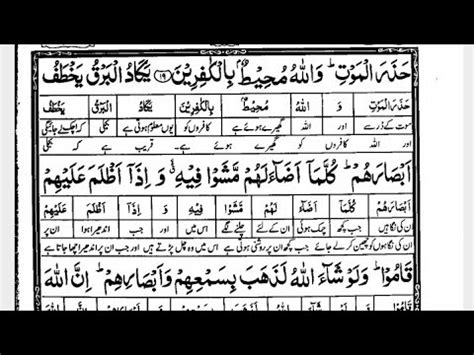 حَذَرَ الْمَوْتِ ؕ وَاللّٰهُ مُحِيْطٌۢ بِالْكٰفِرِيْنَ ۱۹ يَكَادُ الْبَرْقُ يَخْطَفُ
حَذَرَ الْمَوْتِ وَ اللّٰهُ مُحِيْطٌ بِالْكٰفِرِيْنَ يَكَادُ الْبَرْقُ يَخْطَفُ
موت کے ڈر سے اور اللہ گھیرے ہوئے ہے کافروں کو یوں معلوم ہوتی ہے بجلی کہ اچک لے جائیگی
اور اللہ کافروں کو گھیرے ہوئے ہے۔ قریب ہے کہ بجلی
اَبْصَارَهُمْ ؕ كُلَّمَاۤ اَضَآءَ لَهُمْ مَّشَوْا فِيْهِ ۙ وَ اِذَاۤ اَظْلَمَ عَلَيْهِمْ
اَبْصَارَهُمْ كُلَّمَا اَضَآءَ لَهُمْ مَّشَوْا فِيْهِ وَ اِذَا اَظْلَمَ عَلَيْهِمْ
ان کی نگاہیں جب کچھ روشنی ہوئی ان کے لئے چلنے لگے اس میں اور جب اندھیرا ہوا ان پر
ان کی نگاہوں کو چھین کر لے جائے جب کچھ ان پر روشنی ہوتی ہے اس میں وہ چل پڑتے ہیں اور جب ان پر اندھیرا چھا جاتا ہے
قَامُوْا ؕ وَلَوْ شَآءَ اللّٰهُ لَذَهَبَ بِسَمْعِهِمْ وَاَبْصَارِهِمْ ؕ اِنَّ اللّٰهَ